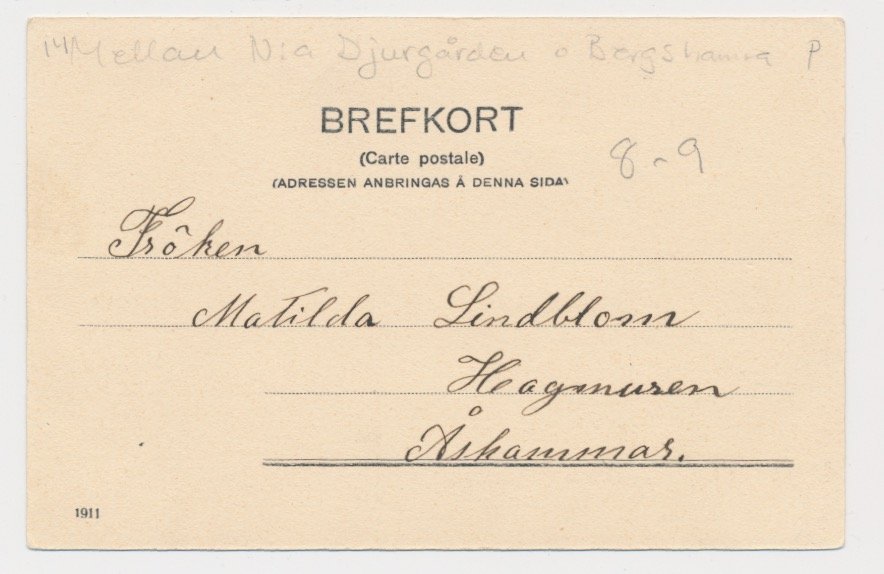 Mellan N:a Djurgården o Bergshamra P
BREFKORT
(Carte postale)
8-9
(ADRESSEN ANBRINGAS Å DENNA SIDA)
Fröken
Matilda Lindblom
Hagmuren
Åshammar.
1911